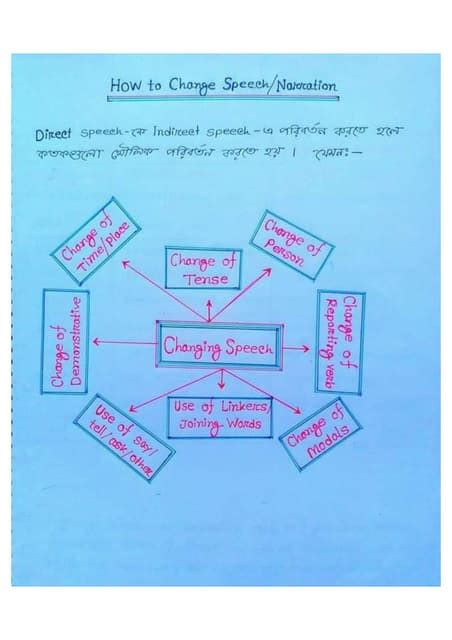 How to Change Speech/Narration
Direct speech-কে Indirect speech-এ পরিবর্তন করতে হলে
কতকগুলো মৌলিক পরিবর্তন করতে হয় । যেমনঃ-
Change of
Time/Place
Change of
Tense
Change of
Person
Change of
Demonstrative
Changing Speech
Change of
Reporting verb
Use of say/
tell/ask/other
Use of Linkers/
Joining-Words
Change of
Modals